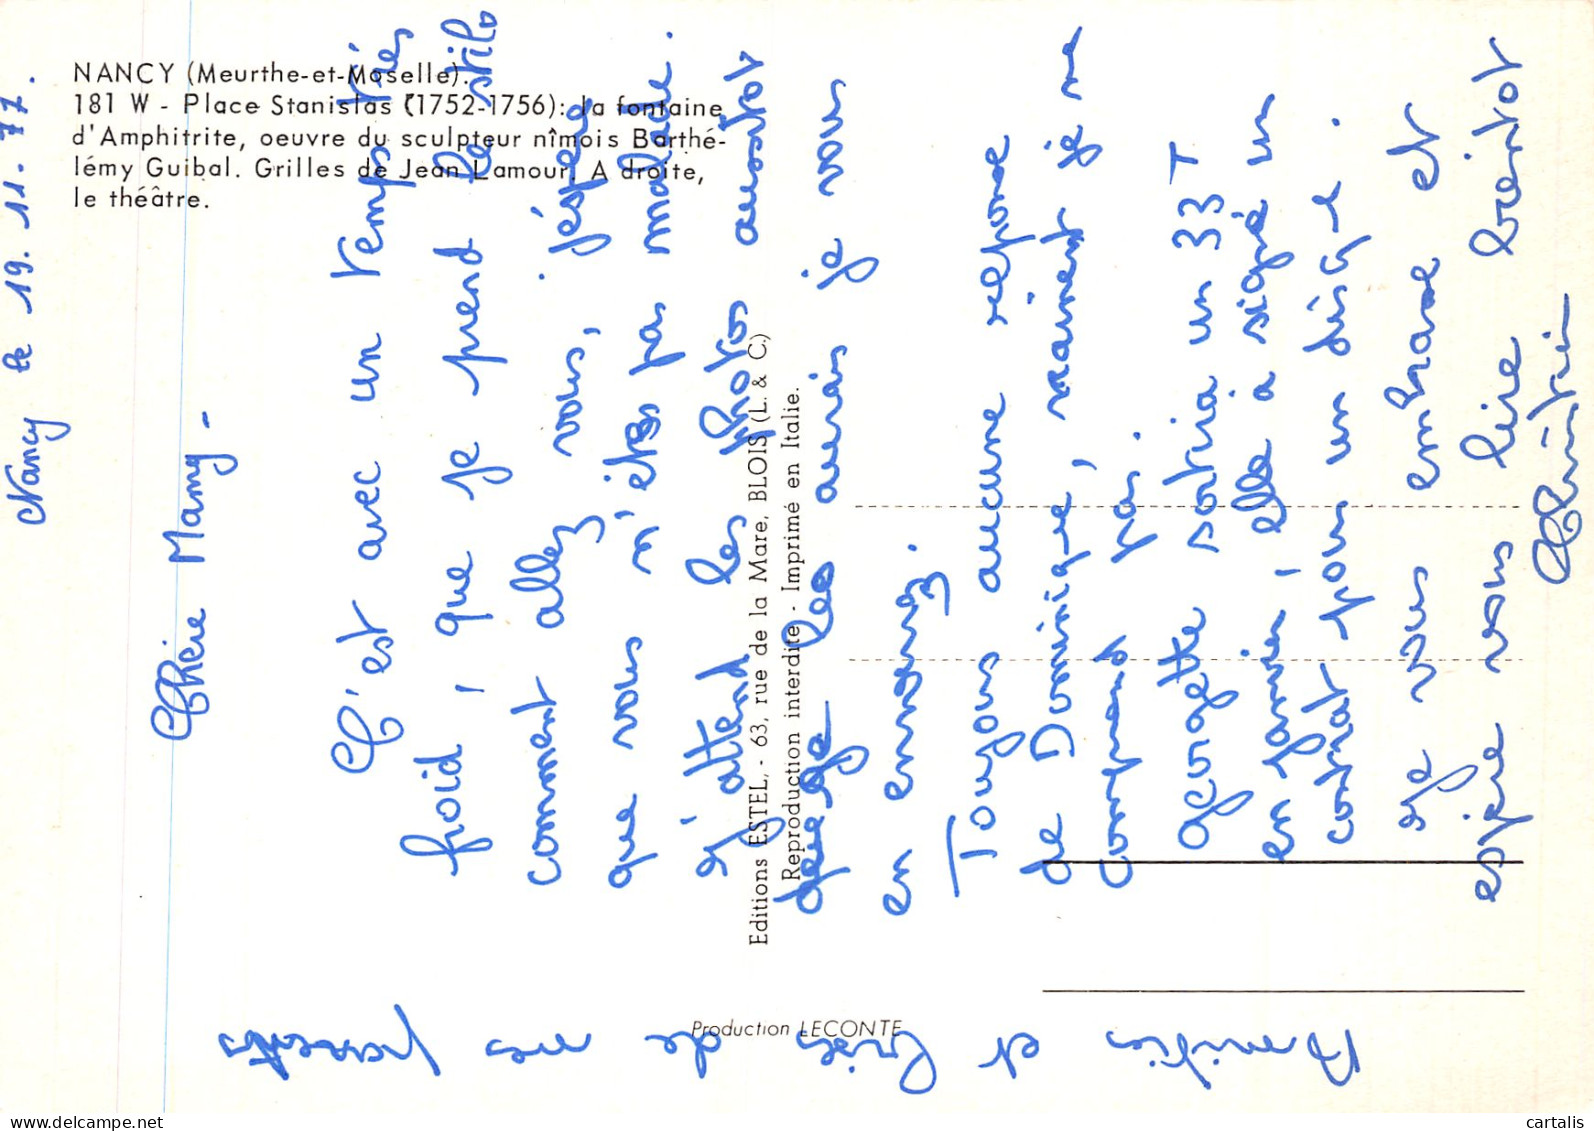 NANCY (Meurthe-et-Moselle).
181 W - Place Stanislas (1752-1756): la fontaine
d'Amphitrite, oeuvre du sculpteur nîmois Barthé-
lémy Guibal. Grilles de Jean Lamour. A droite,
le théâtre.
Editions ESTEL, - 63, rue de la Mare, BLOIS (L. & C.)
Reproduction interdite - Imprimé en Italie.
Production LECONTE
Nancy le 19.11.77.
Chère Mamy -
C'est avec un temps très
froid, que je prend le stilo
comment allez vous, j'éspère
que vous n'êtes pas malade.
J'attend les photos aussitot
que je les aurais je vous
en
Toujours aucune reponse
de Dominique, vraiment je ne
comprend pas.
Georgette sortira un 33 T
en janvier, elle à signé un
contrat pour un disque.
Je vous embrasse et
espère vous lire bientot
Amitiés et bises de mes parents
cartalis